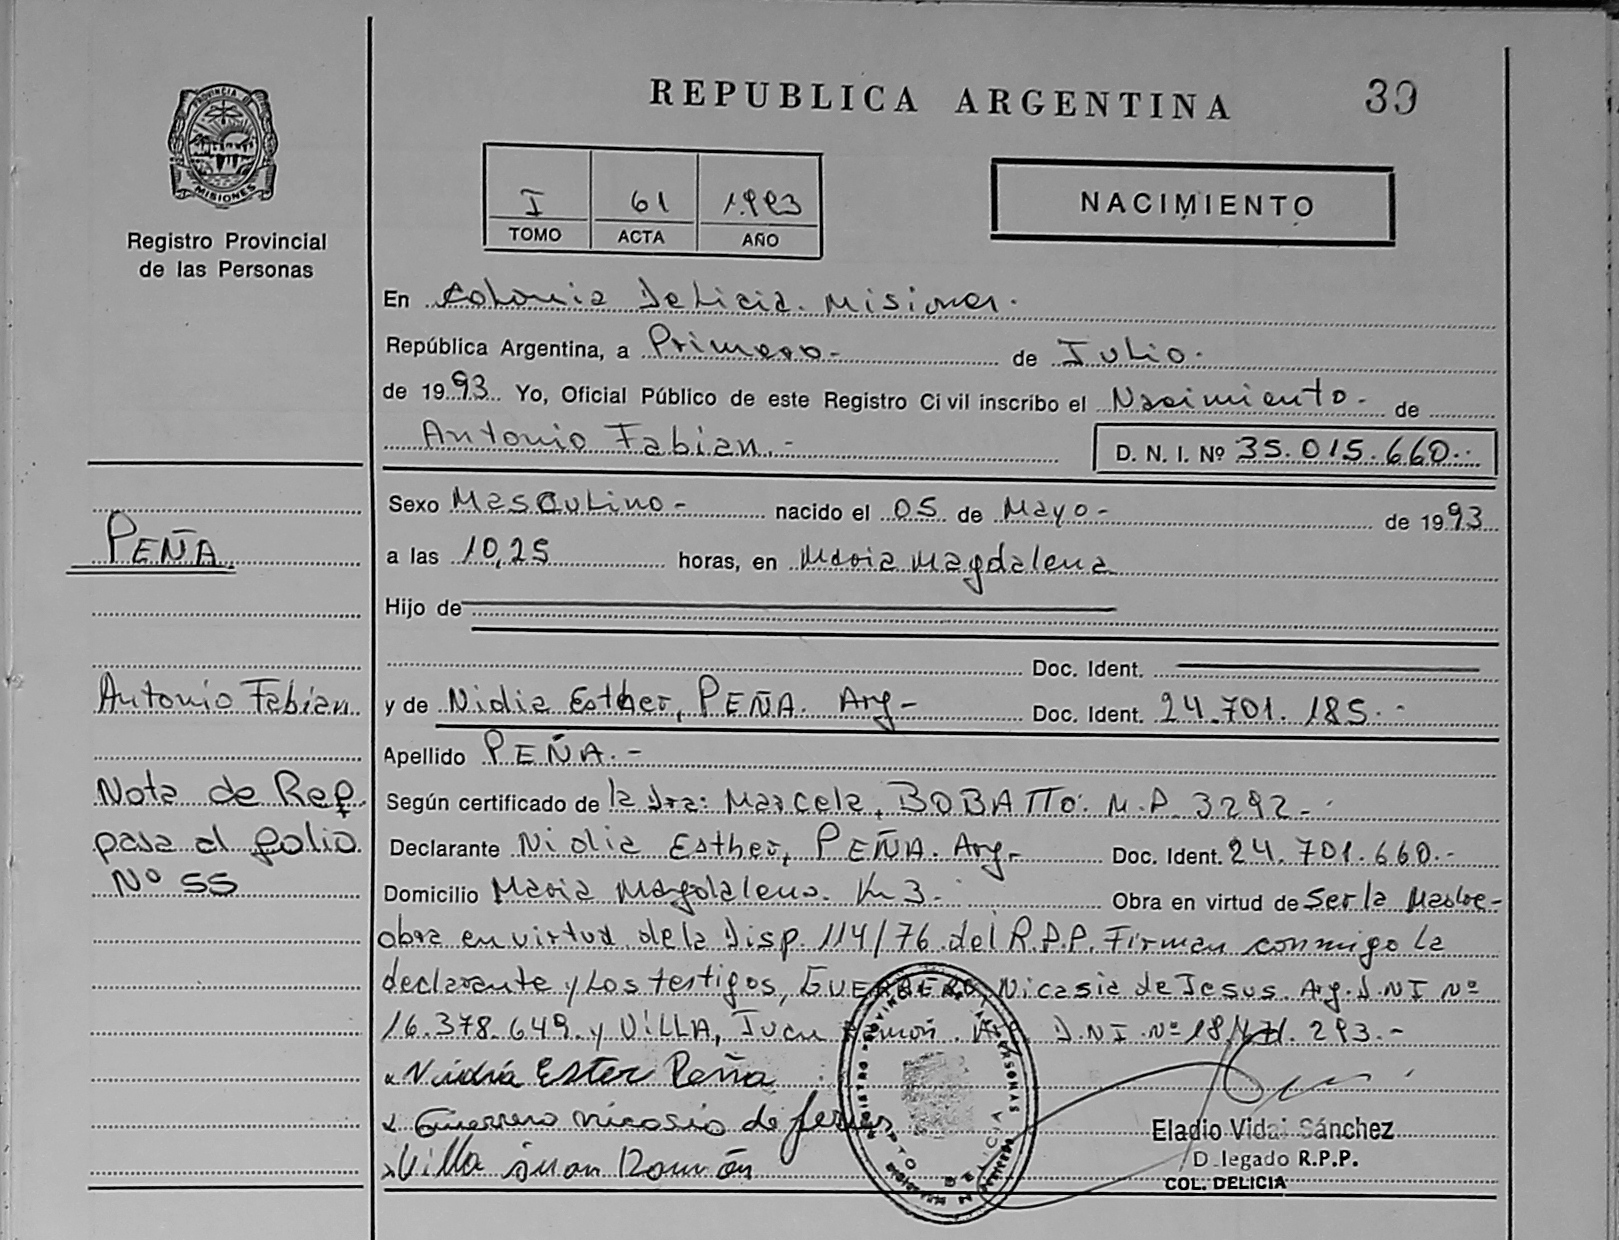 REPUBLICA ARGENTINA
39
PROVINCIA DE
MISIONES
Registro Provincial
de las Personas
I 61 1993
TOMO ACTA AÑO
NACIMIENTO
En Colonia Delicia. Misiones.
República Argentina, a Primero- de Julio.
de 1993. Yo, Oficial Público de este Registro Civil inscribo el Nacimiento- de
Antonio Fabian.-
D. N. I. Nº 35.015.660.-
PEÑA.
Antonio Fabian
Nota de Ref.
pasa al folio
Nº 55
Sexo Masculino- nacido el 05 de Mayo- de 1993
a las 10,25 horas, en Maria Magdalena
Hijo de
Doc. Ident.
y de Nidia Esther, PEÑA. Arg- Doc. Ident. 24.701.185.-
Apellido PEÑA.-
Según certificado de la Dra: Marcela, BOBATTO. M.P. 3292-
Declarante Nidia Esther, PEÑA. Arg- Doc. Ident. 24.701.660.-
Domicilio Maria Magdalena. Km 3. Obra en virtud de Ser la Madre-
obra en virtud de la Disp. 114/76 del R.P.P. Firman conmigo la
declarante y Los testigos, GUERRERO, Nicasio de Jesus. Arg. D.N.I Nº
16.378.649. y VILLA, Juan Ramón. Arg. D.N.I. Nº 18. .293.-
x Nidia Ester Peña
x Guerrero nicasio de Jesus
x Villa Juan Ramón
Eladio Vidal Sánchez
Delegado R.P.P.
COL. DELICIA